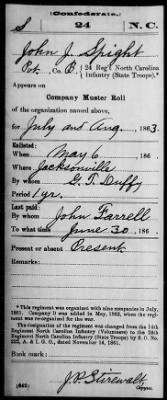 (Confederate.)
S 24 N.C.
John J. Spight
Pvt., Co. B, 24 Reg't North Carolina
Infantry (State Troops).*
Appears on
Company Muster Roll
of the organization named above,
for July and Aug., 1863.
Enlisted:
When May 6, 186
Where Jacksonville
By whom G. T. Duffy
Period 1 yr.
Last paid:
By whom John Farrell
To what time June 30, 186
Present or absent Present
Remarks:
*This regiment was organized with nine companies in July,
1861. Company D was added in May, 1862, when the regiment was
re-organized.
The designation of the regiment was changed from the 14th
Regiment North Carolina Infantry (Volunteers) to the 24th
Regiment North Carolina Infantry (State Troops) by S. O. No.
222, A. & I. G. O., dated November 14, 1861.
Book mark:
(642) J. P. Stirewalt
Copyist.